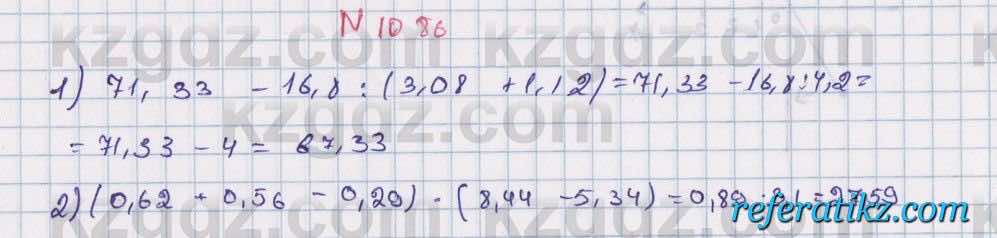 N 1086
1) 71,33 - 16,8 : (3,08 + 1,12) = 71,33 - 16,8 : 4,2 =
= 71,33 - 4 = 67,33
2) (0,62 + 0,56 - 0,29) · (8,44 - 5,34) = 0,89 · 3,1 = 2,759
kzgdz.com
kzgdz.com
referatikz.com